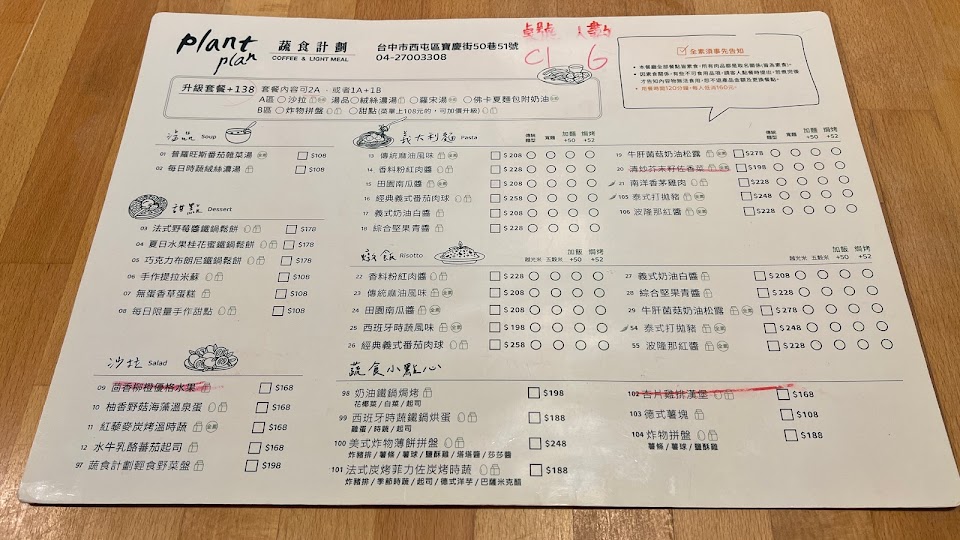 plant plan
蔬食計劃
COFFEE & LIGHT MEAL
台中市西屯區寶慶街50巷51號
04-27003308
桌號 人數
C1 6
全素須事先告知
用餐時間120分鐘,每人低消160元。
升級套餐+138 套餐內容可2A 或者1A+1B
A區 沙拉 湯品 絨絲濃湯 羅宋湯 佛卡夏麵包附奶油
B區 炸物拼盤 甜點(菜單上108元的,可加價升級)
湯品 Soup
01 普羅旺斯番茄雜菜湯 $108
02 每日時蔬絨絲濃湯 $108
甜點 Dessert
03 法式野莓醬鐵鍋鬆餅 $178
04 夏日水果桂花蜜鐵鍋鬆餅 $178
05 巧克力布朗尼鐵鍋鬆餅 $178
06 手作提拉米蘇 $108
07 無蛋香草蛋糕 $108
08 每日限量手作甜點 $108
沙拉 Salad
09 茴香柳橙優格水果 $168
10 柚香野菇海藻溫泉蛋 $168
11 紅藜麥炭烤溫時蔬 $168
12 水牛乳酪蕃茄起司 $168
97 蔬食計劃輕食野菜盤 $198
義大利麵 Pasta
傳統麵型 寬麵 加麵+50 焗烤+52
13 傳統麻油風味 $208
14 香料粉紅肉醬 $228
15 田園南瓜醬 $208
16 經典義式番茄肉球 $258
17 義式奶油白醬 $208
18 綜合堅果青醬 $208
傳統麵型 寬麵 加麵+50 焗烤+52
19 牛肝菌菇奶油松露 $278
20 清炒芬末籽佐香菜 $198
21 南洋香茅雞肉 $228
105 泰式打拋豬 $248
106 波隆那紅醬 $228
燉飯 Risotto
越光米 五穀米 加飯+50 焗烤+52
22 香料粉紅肉醬 $228
23 傳統麻油風味 $208
24 田園南瓜醬 $208
25 西班牙時蔬風味 $198
26 經典義式番茄肉球 $258
越光米 五穀米 加飯+50 焗烤+52
27 義式奶油白醬 $208
28 綜合堅果青醬 $208
29 牛肝菌菇奶油松露 $278
54 泰式打拋豬 $248
55 波隆那紅醬 $228
蔬食小點心
98 奶油鐵鍋焗烤 $198
花椰菜/白菜/起司
99 西班牙時蔬鐵鍋烘蛋 $188
雞蛋/時蔬/起司
100 美式炸物薄餅拼盤 $248
炸豬排/薯條/薯球/鹽酥雞/塔塔醬/莎莎醬
101 法式炭烤菲力佐炭烤時蔬 $188
炸豬排/季節時蔬/起司/德式洋芋/巴薩米克醋
102 吉片雞排漢堡 $168
103 德式薯塊 $108
104 炸物拼盤 $188
薯條/薯球/鹽酥雞